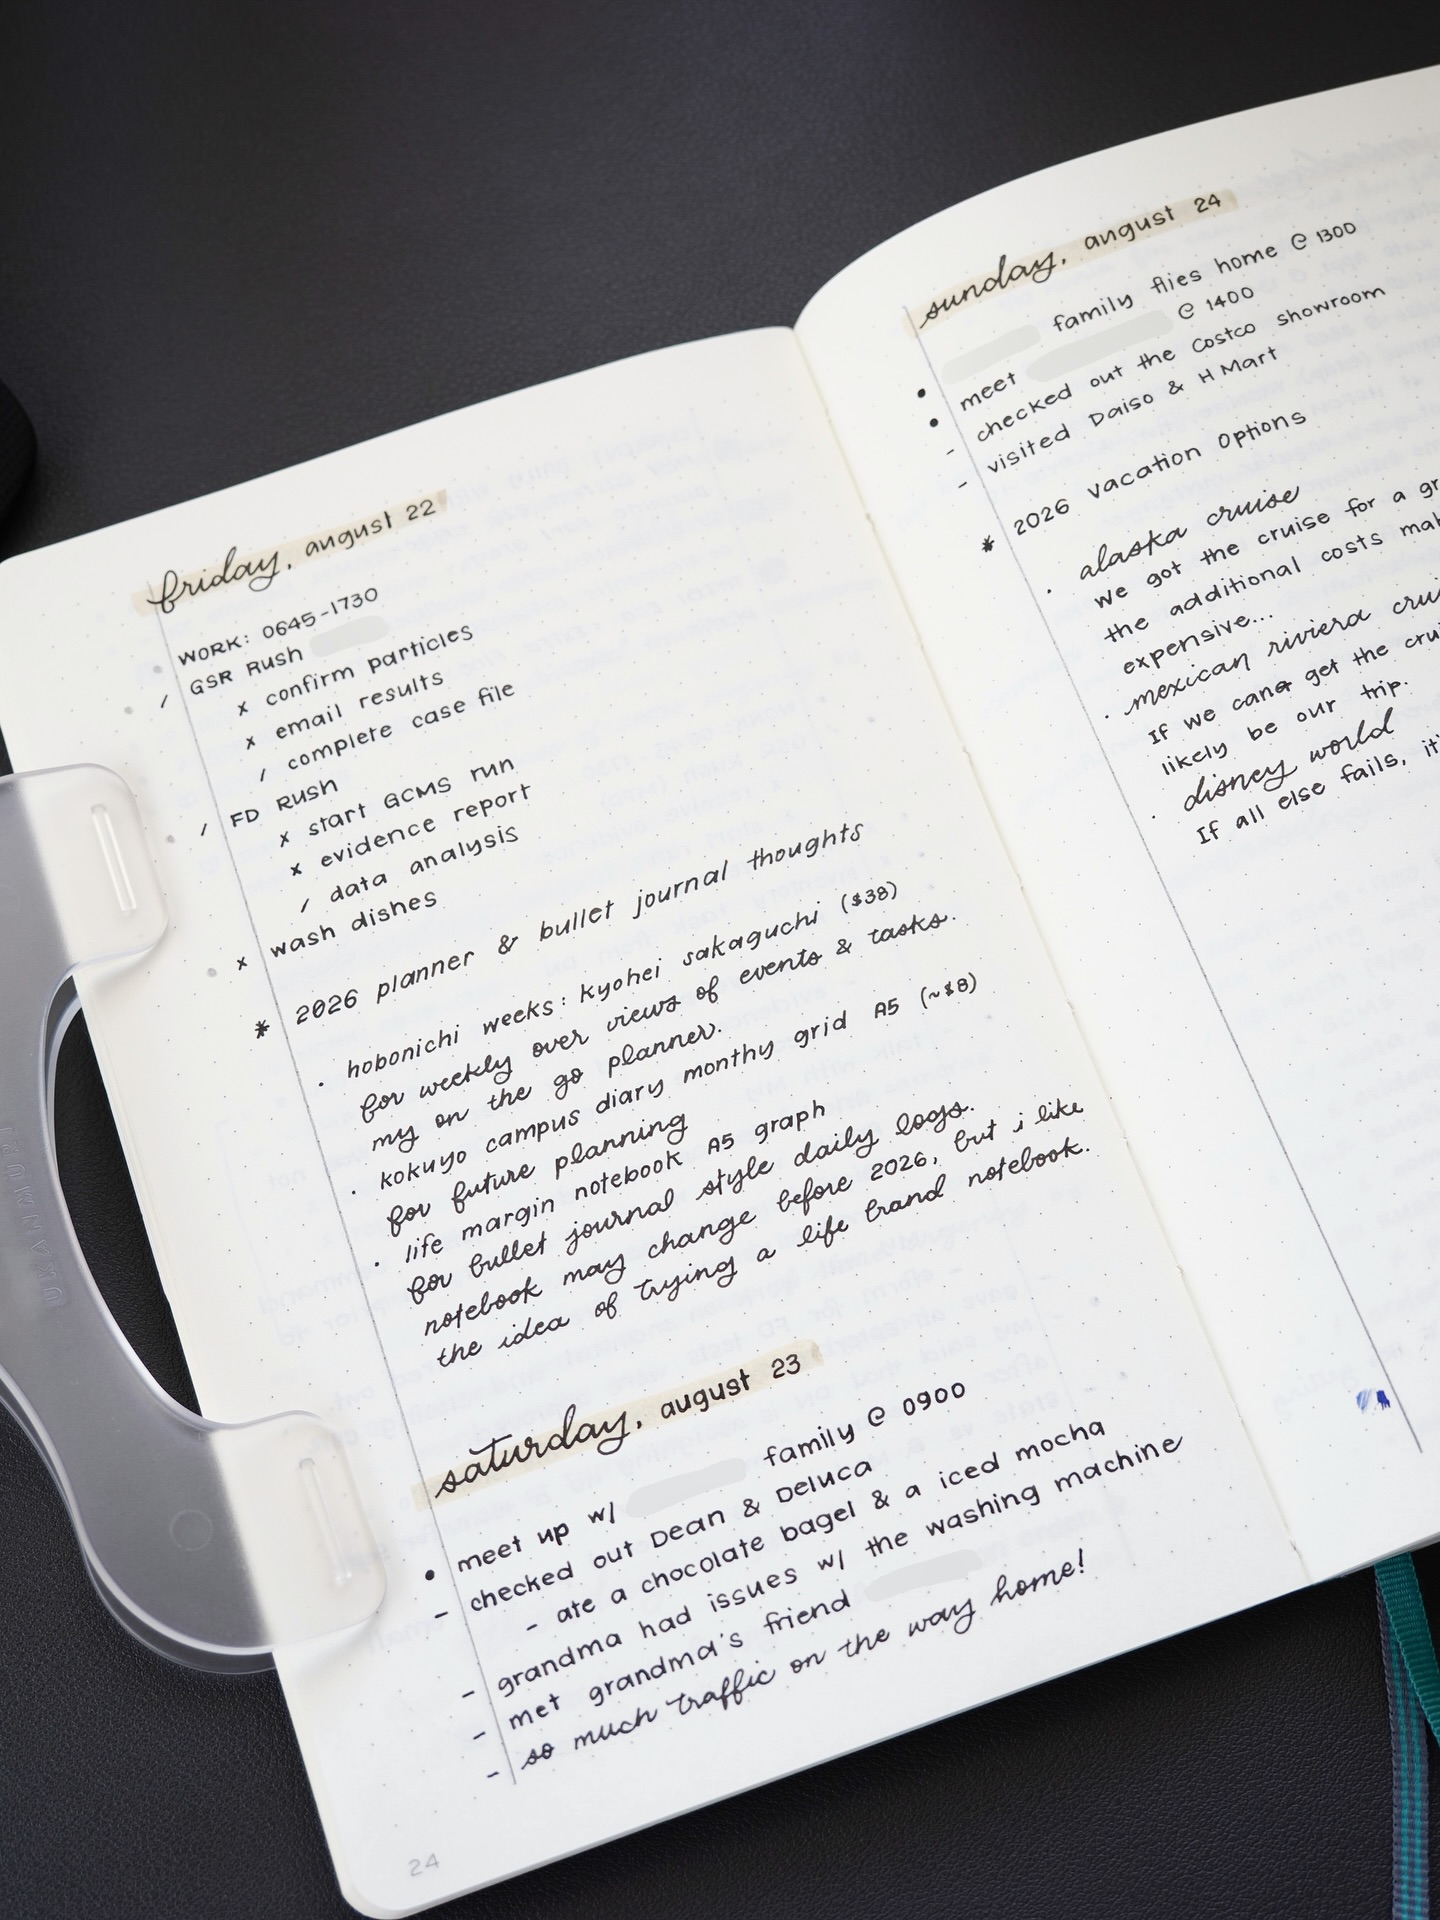 friday, august 22
WORK: 0645-1730
/ GSR Rush
x confirm particles
x email results
/ complete case file
/ FD Rush
x start GCMS run
x evidence report
/ data analysis
x wash dishes
* 2026 planner & bullet journal thoughts
· hobonichi weeks: kyohei sakaguchi ($38)
for weekly over views of events & tasks.
my on the go planner.
· kokuyo campus diary monthy grid A5 (~$8)
for future planning
· life margin notebook A5 graph
for bullet journal style daily logs.
notebook may change before 2026, but i like
the idea of trying a life brand notebook.
saturday, august 23
• meet up w/ family @ 0900
- checked out Dean & Deluca
- ate a chocolate bagel & a iced mocha
- grandma had issues w/ the washing machine
- met grandma's friend
- so much traffic on the way home!
24
sunday, august 24
• family flies home @ 1300
• meet @ 1400
- checked out the Costco showroom
- visited Daiso & H Mart
* 2026 Vacation Options
· alaska cruise
we got the cruise for a
the additional costs
expensive...
· mexican riviera
If we can get the
likely be our trip.
· disney world
If all else fails,